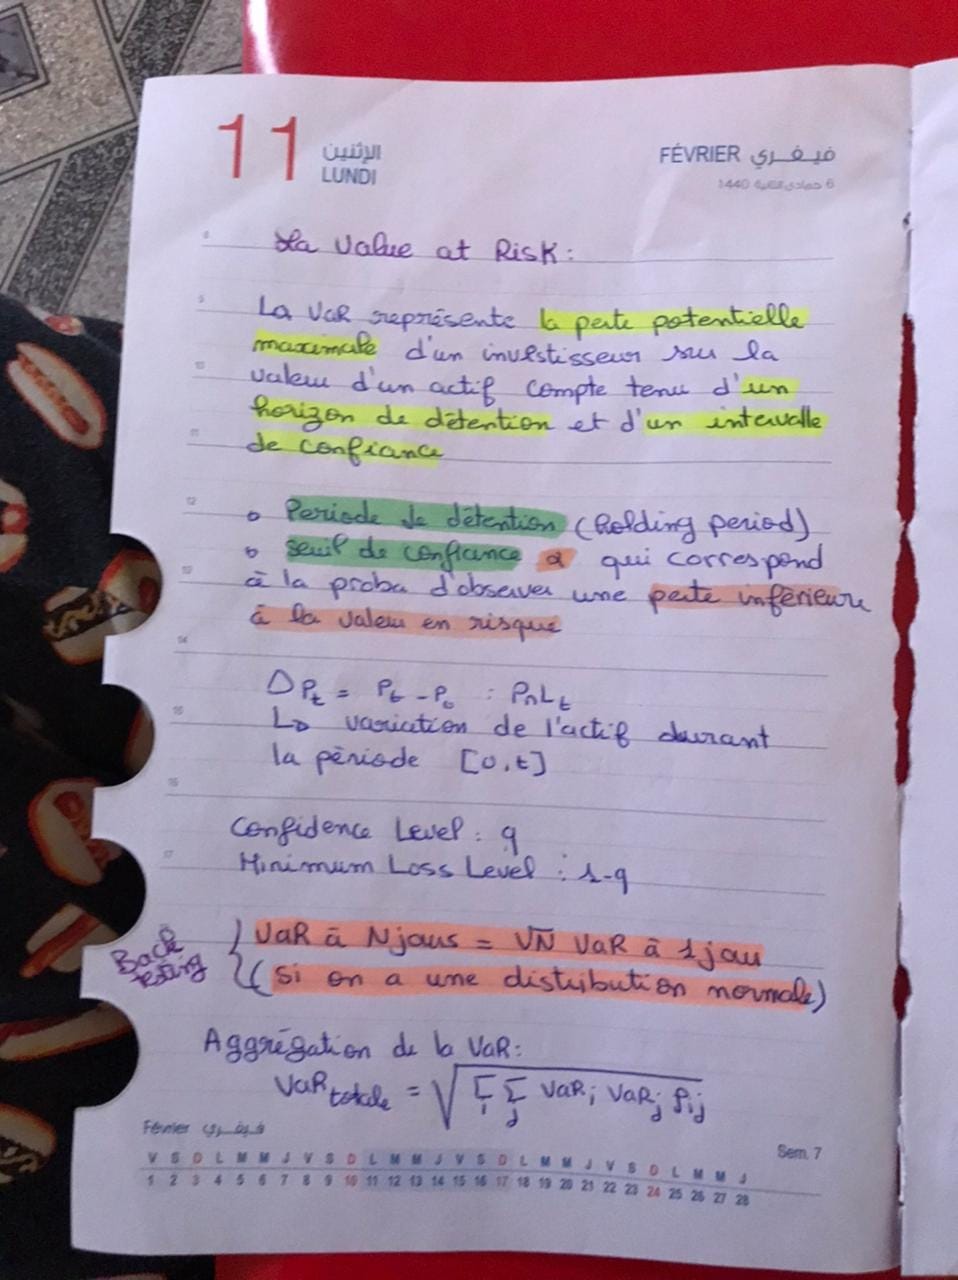 11
الإثنين
LUNDI
FÉVRIER فيفري
6 جمادى الثانية 1440
8
La Value at Risk :
9
La VaR représente la perte potentielle
maximale d'un investisseur sur la
10
valeur d'un actif compte tenu d'un
horizon de détention et d'un intervalle
11
de confiance
12
o Periode de détention (holding period)
o seuil de confiance α qui correspond
13
à la proba d'observer une perte inférieure
à la valeur en risque
14
Δ Pt = Pt - P0 : PnLt
15
↳ variation de l'actif durant
la période [0,t]
16
Confidence Level : q
17
Minimum Loss Level : 1-q
Back testing
VaR à N jours = √N VaR à 1 jour
(si on a une distribution normale)
Aggrégation de la VaR :
VaR totale = √ Σi Σj VaRi VaRj ρij
Février فيفري
Sem. 7
V S D L M M J V S D L M M J V S D L M M J V S D L M M J
1 2 3 4 5 6 7 8 9 10 11 12 13 14 15 16 17 18 19 20 21 22 23 24 25 26 27 28